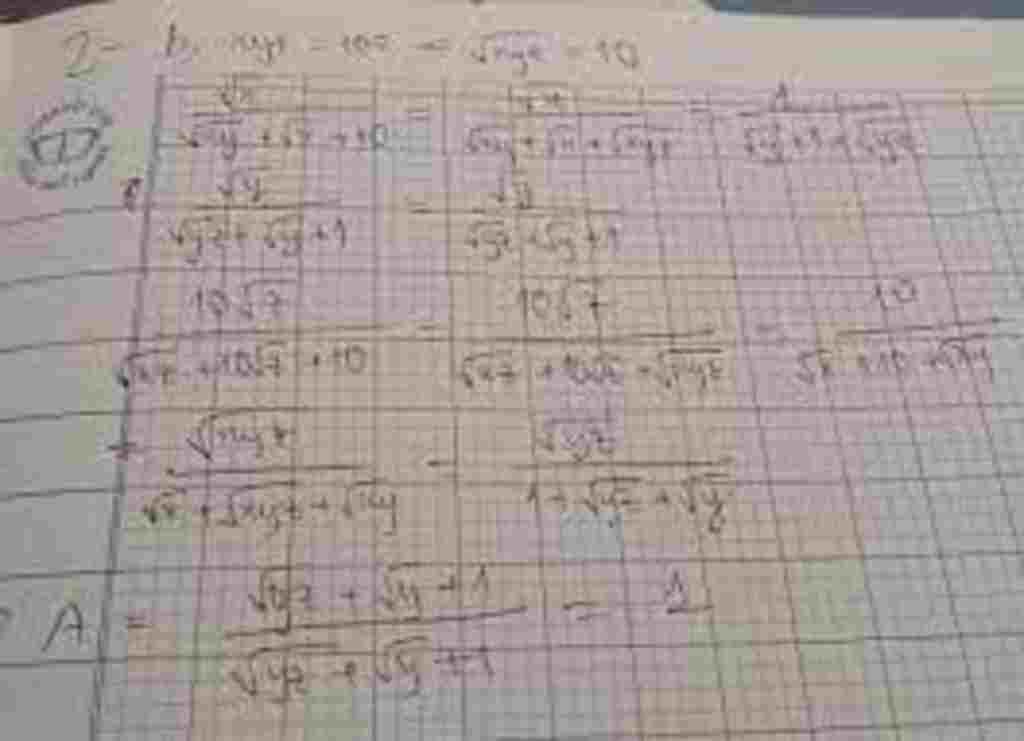 2- b, xyz = 100 => √xyz = 10
√x / (√xy + √x + 10) = √x / (√xy + √x + √xyz) = 1 / (√y + 1 + √yz)
√y / (√yz + √y + 1) = √y / (√yz + √y + 1)
10√z / (√xz + 10√z + 10) = 10√z / (√xz + 10√z + √xyz) = 10 / (√x + 10 + √xy)
= √xyz / (√x + √xyz + √xy) = √yz / (1 + √yz + √y)
A = (√yz + √y + 1) / (√yz + √y + 1) = 1